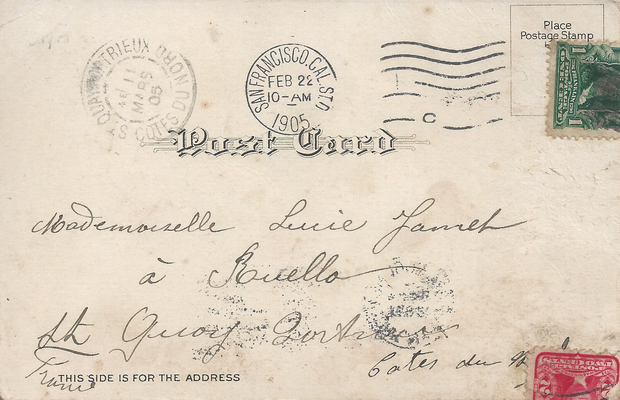 Place
Postage Stamp
PORTRIEUX
11
MARS
05
COTES DU NORD
SAN FRANCISCO, CAL. STA
FEB 22
10-AM
1905
C
Post Card
Mademoiselle Lucie Jamet
à Ruello
St Quay Portrieux
Cotes du Nord
France
THIS SIDE IS FOR THE ADDRESS